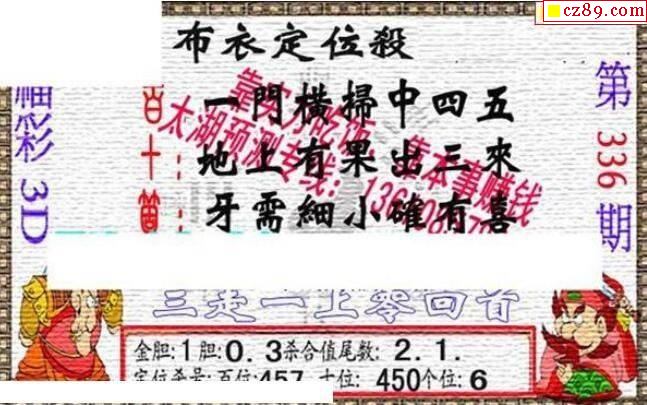 cz89.com
布衣定位殺
福彩3D
第336期
百:一門橫掃中四五
十:地上有果出三來
牙需細小確有喜
太湖预测专线:
靠本事赚钱
三走一上零回首
金胆:1胆:0.3杀合值尾数:2.1.
定位杀号:百位:457 十位:450个位:6